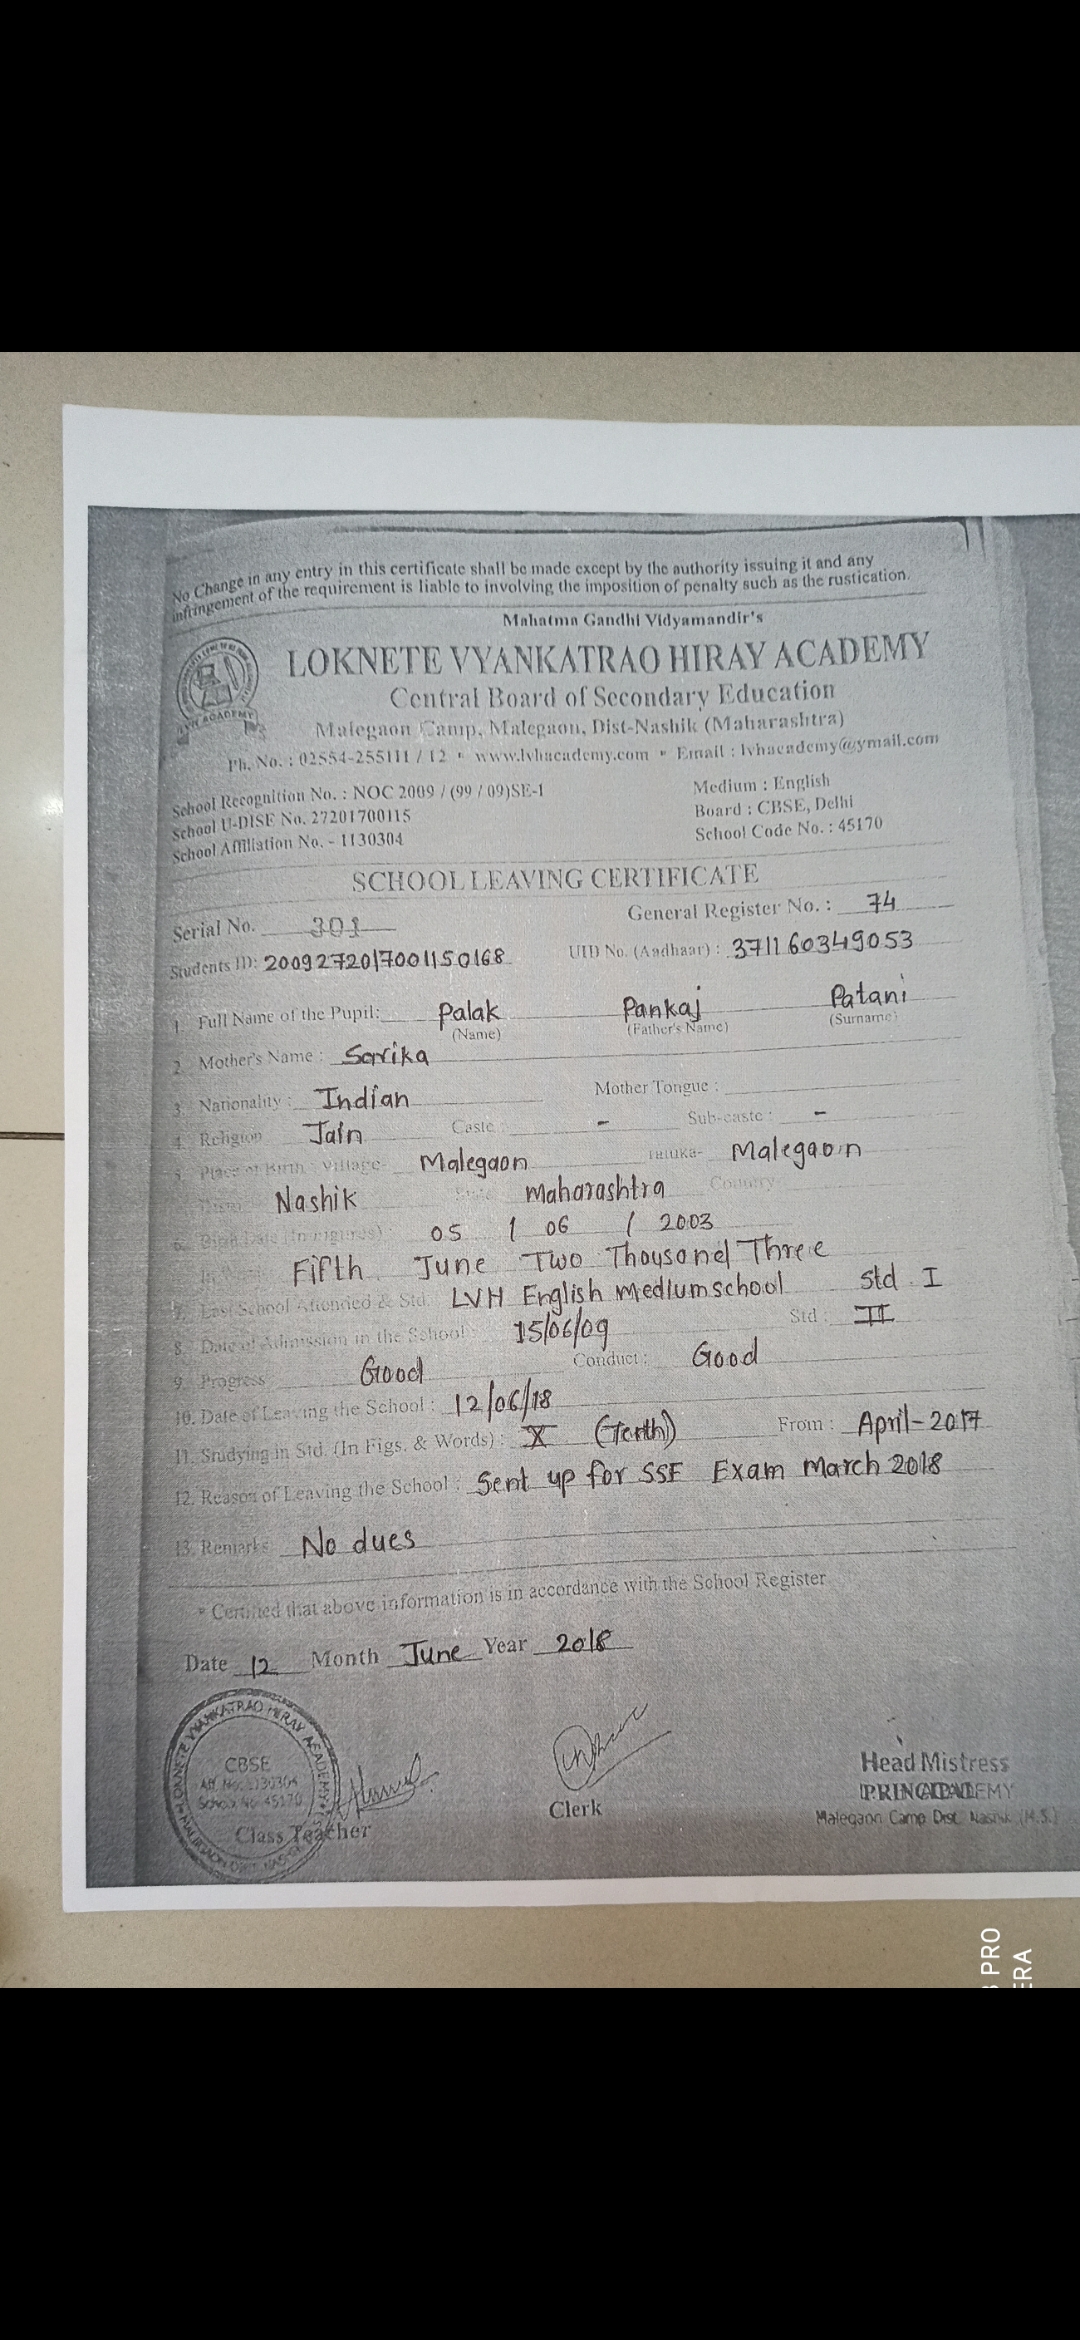 No Change in any entry in this certificate shall be made except by the authority issuing it and any
infringement of the requirement is liable to involving the imposition of penalty such as the rustication.
Mahatma Gandhi Vidyamandir's
LOKNETE VYANKATRAO HIRAY ACADEMY
Central Board of Secondary Education
Malegaon Camp, Malegaon, Dist-Nashik (Maharashtra)
Ph. No. : 02554-255111 / 12 • www.lvhacademy.com • Email : lvhacademy@ymail.com
School Recognition No. : NOC 2009 / (99 / 09)SE-1 Medium : English
School U-DISE No. 27201700115 Board : CBSE, Delhi
School Affiliation No. - 1130304 School Code No. : 45170
SCHOOL LEAVING CERTIFICATE
Serial No. 301 General Register No. : 74
Students ID: 2009272017001150168 UID No. (Aadhaar) : 371160349053
1. Full Name of the Pupil: Palak Pankaj Patani
(Name) (Father's Name) (Surname)
2. Mother's Name : Sarika
3. Nationality : Indian Mother Tongue :
4. Religion Jain Caste : - Sub-caste : -
5. Place of Birth : Village- Malegaon Taluka- Malegaon
Nashik State maharashtra Country
6. Birth Date (In figures) 05 / 06 / 2003
Fifth June Two Thousand Three
7. Last School Attended & Std. LVH English Medium school Std. I
8. Date of Admission in the School 15/06/09 Std : II
9. Progress Good Conduct : Good
10. Date of Leaving the School : 12/06/18
11. Studying in Std. (In Figs. & Words) : X (Tenth) From : April-2017
12. Reason of Leaving the School : Sent up for SSE Exam March 2018
13. Remarks No dues
* Certified that above information is in accordance with the School Register
Date 12 Month June Year 2018
LOKNETE VYANKATRAO HIRAY ACADEMY
CBSE
Aff. No. 1130304
School No 45170
Class Teacher
Clerk
Head Mistress
PRINCIPAL
Malegaon Camp Dist. Nashik (M.S.)
PRO
ERA